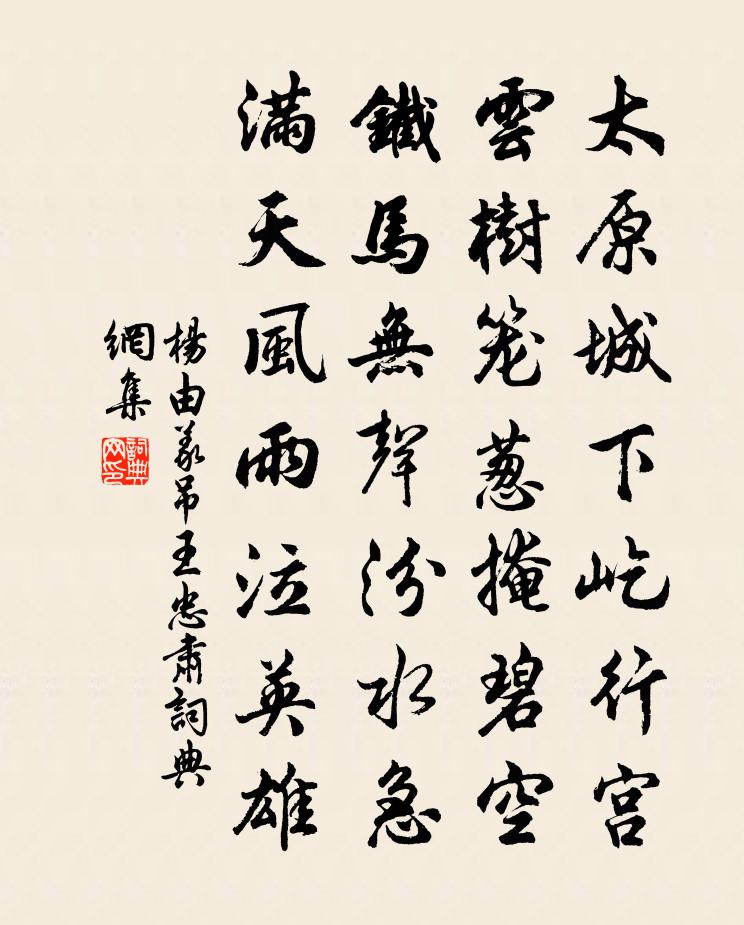 太原城下屹行宫
雲樹笼葱掩碧空
鐵馬無聲汾水急
滿天風雨泣英雄
楊由义吊王忠肅詞典
網集
詞典
网印